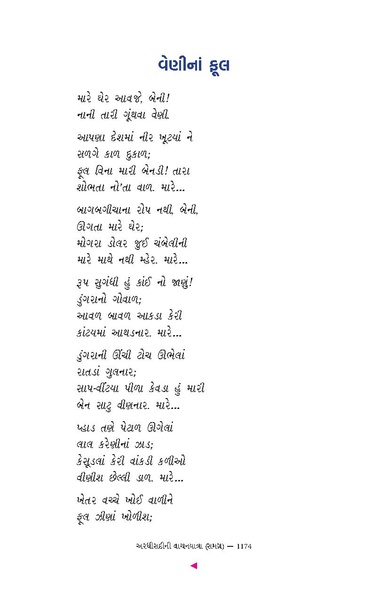 વેણીનાં ફૂલ
મારે ઘેર આવજે, બેની!
નાની તારી ગૂંથવા વેણી.
આપણા દેશમાં નીર ખૂટ્યાં ને
સળગે કાળ દુકાળ;
ફૂલ વિના મારી બેનડી! તારા
શોભતા નો'તા વાળ. મારે...
બાગબગીચાના રોપ નથી, બેની,
ઊગતા મારે ઘેર;
મોગરા ડોલર જુઈ ચંબેલીની
મારે માથે નથી મ્હેર. મારે...
રૂપ સુગંધી હું કાંઈ નો જાણું!
ડુંગરાનો ગોવાળ;
આવળ બાવળ આકડા કેરી
કાંટ્યમાં આથડનાર. મારે...
ડુંગરાની ઊંચી ટોચ ઊભેલાં
રાતડાં ગુલનાર;
સાપ-વીંટ્યા પીળા કેવડા હું મારી
બેન સાટુ વીણનાર. મારે...
પ્હાડ તણે પેટાળ ઊગેલાં
લાલ કરેણીનાં ઝાડ;
કેસૂડલાં કેરી વાંકડી કળીઓ
વીણીશ છેલ્લી ડાળ. મારે...
ખેતર વચ્ચે ખોઈ વાળીને
ફૂલ ઝીણાં ખોળીશ;
અરધીસદીની વાચનયાત્રા (સમગ્ર) — 1174